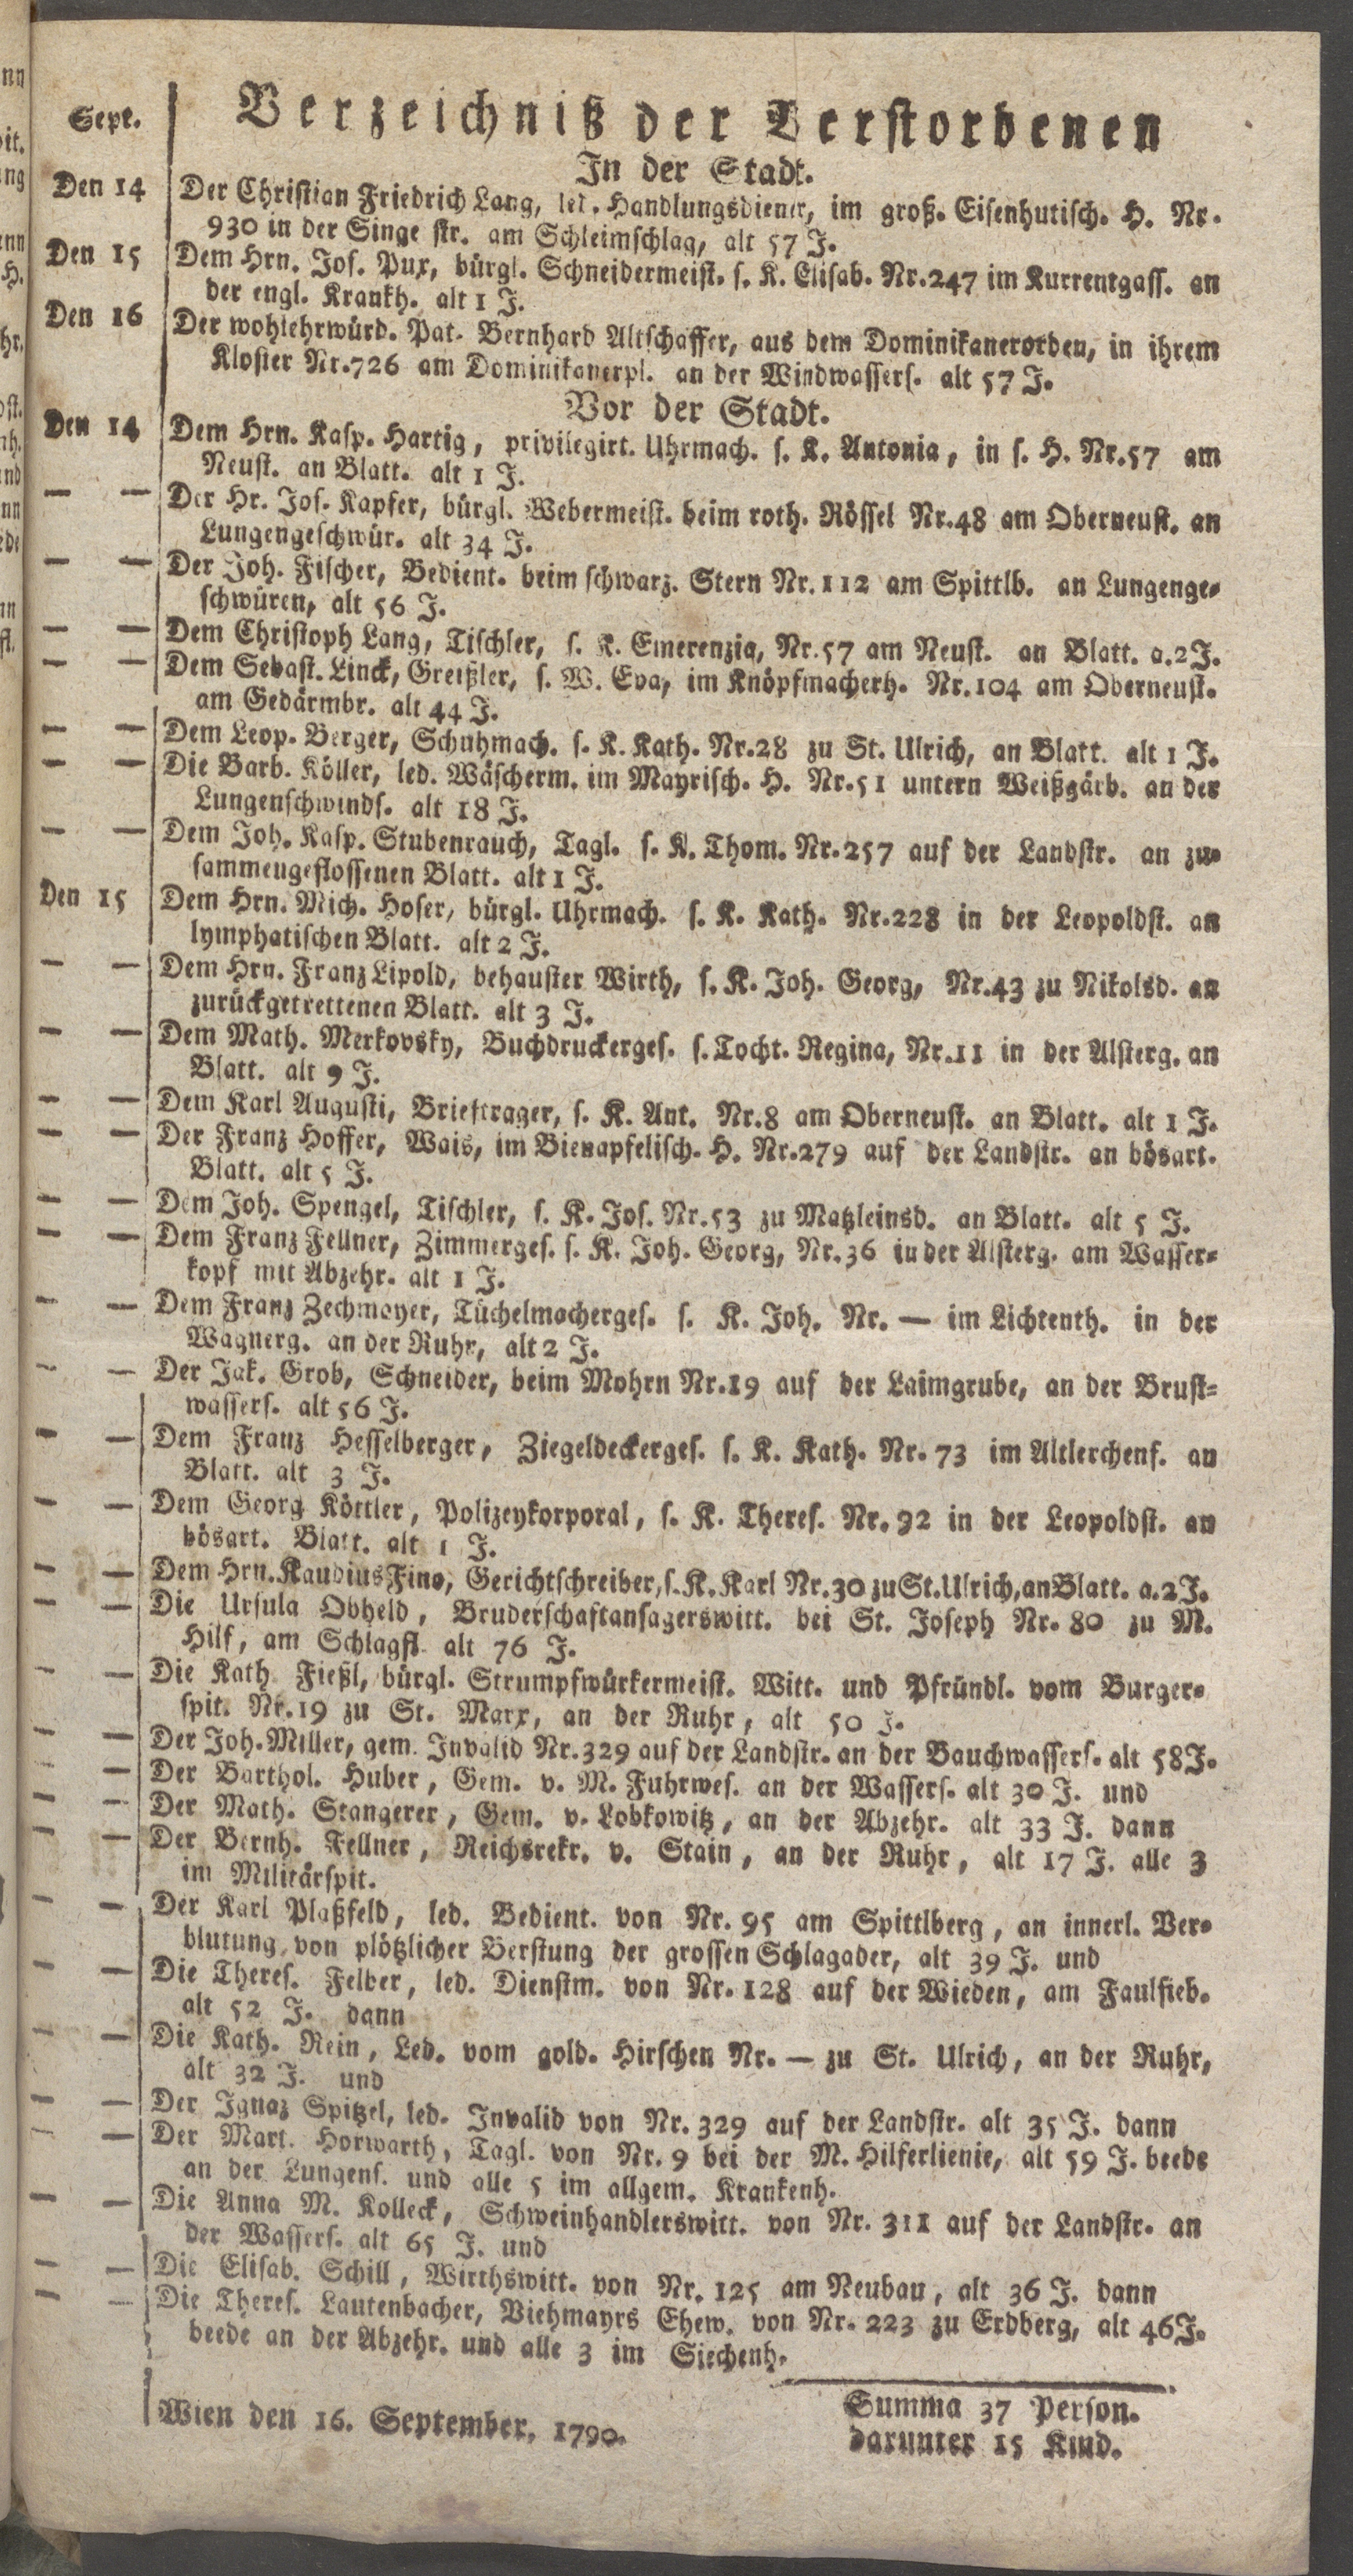 Verzeichniß der Verstorbenen
Sept.
In der Stadt.
Den 14 Der Christian Friedrich Lang, led. Handlungsdiener, im groß. Eisenhutisch. H. Nr.
930 in der Singe str. am Schleimschlag, alt 57 J.
Den 15 Dem Hrn. Jos. Pux, bürgl. Schneidermeist. s. K. Elisab. Nr.247 im Kurrentgass. an
der engl. Krankh. alt 1 J.
Den 16 Der wohlehrwürd. Pat. Bernhard Altschaffer, aus dem Dominikanerorden, in ihrem
Kloster Nr.726 am Dominikanerpl. an der Windwassers. alt 57 J.
Vor der Stadt.
Den 14 Dem Hrn. Kasp. Hartig, privilegirt. Uhrmach. s. K. Antonia, in s. H. Nr.57 am
Neust. an Blatt. alt 1 J.
— — Der Hr. Jos. Kapfer, bürgl. Webermeist. beim roth. Rössel Nr.48 am Oberneust. an
Lungengeschwür. alt 34 J.
— — Der Joh. Fischer, Bedient. beim schwarz. Stern Nr.112 am Spittlb. an Lungenge-
schwüren, alt 56 J.
— — Dem Christoph Lang, Tischler, s. K. Emerenzia, Nr.57 am Neust. an Blatt. a.2J.
— — Dem Sebast. Linck, Greißler, s. W. Eva, im Knöpfmacherh. Nr.104 am Oberneust.
am Gedärmbr. alt 44 J.
— — Dem Leop. Berger, Schuhmach. s. K. Kath. Nr.28 zu St. Ulrich, an Blatt. alt 1 J.
— — Die Barb. Köller, led. Wäscherm. im Mayrisch. H. Nr.51 untern Weißgärb. an der
Lungenschwinds. alt 18 J.
— — Dem Joh. Kasp. Stubenrauch, Tagl. s. K. Thom. Nr.257 auf der Landstr. an zu-
sammengeflossenen Blatt. alt 1 J.
Den 15 Dem Hrn. Mich. Hoser, bürgl. Uhrmach. s. K. Kath. Nr.228 in der Leopoldst. an
lymphatischen Blatt. alt 2 J.
— — Dem Hrn. Franz Lipold, behauster Wirth, s. K. Joh. Georg, Nr.43 zu Nikolsd. an
zurückgetrettenen Blatt. alt 3 J.
— — Dem Math. Merkovsky, Buchdruckerges. s. Tocht. Regina, Nr.11 in der Alsterg. an
Blatt. alt 9 J.
— — Dem Karl Augusti, Brieftrager, s. K. Ant. Nr.8 am Oberneust. an Blatt. alt 1 J.
— — Der Franz Hoffer, Wais, im Bienapfelisch. H. Nr.279 auf der Landstr. an bösart.
Blatt. alt 5 J.
— — Dem Joh. Spengel, Tischler, s. K. Jos. Nr.53 zu Matzleinsd. an Blatt. alt 5 J.
— — Dem Franz Fellner, Zimmerges. s. K. Joh. Georg, Nr.36 in der Alsterg. am Wasser-
kopf mit Abzehr. alt 1 J.
— — Dem Franz Zechmayer, Tüchelmacherges. s. K. Joh. Nr. — im Lichtenth. in der
Wagnerg. an der Ruhr, alt 2 J.
— — Der Jak. Grob, Schneider, beim Mohrn Nr.19 auf der Laimgrube, an der Brust-
wassers. alt 56 J.
— — Dem Franz Hesselberger, Ziegeldeckerges. s. K. Kath. Nr. 73 im Altlerchenf. an
Blatt. alt 3 J.
— — Dem Georg Köttler, Polizeykorporal, s. K. Theres. Nr. 92 in der Leopoldst. an
bösart. Blatt. alt 1 J.
— — Dem Hrn. Kaudius Fino, Gerichtschreiber, s. K. Karl Nr.30 zu St. Ulrich, an Blatt. a.2J.
— — Die Ursula Obheld, Bruderschaftansagerswitt. bei St. Joseph Nr. 80 zu M.
Hilf, am Schlagfl. alt 76 J.
— — Die Kath. Fießl, bürgl. Strumpfwürkermeist. Witt. und Pfründl. vom Burger-
spit. Nr.19 zu St. Marx, an der Ruhr, alt 50 J.
— — Der Joh. Miller, gem. Invalid Nr.329 auf der Landstr. an der Bauchwassers. alt 58J.
— — Der Barthol. Huber, Gem. v. M. Fuhrwes. an der Wassers. alt 30 J. und
— — Der Math. Stangerer, Gem. v. Lobkowitz, an der Abzehr. alt 33 J. dann
— — Der Bernh. Fellner, Reichsrekr. v. Stain, an der Ruhr, alt 17 J. alle 3
im Militärspit.
— — Der Karl Plaßfeld, led. Bedient. von Nr. 95 am Spittlberg, an innerl. Ver-
blutung von plötzlicher Berstung der grossen Schlagader, alt 39 J. und
— — Die Theres. Felber, led. Dienstm. von Nr. 128 auf der Wieden, am Faulfieb.
alt 52 J. dann
— — Die Kath. Rein, Led. vom gold. Hirschen Nr. — zu St. Ulrich, an der Ruhr,
alt 32 J. und
— — Der Ignaz Spitzel, led. Invalid von Nr. 329 auf der Landstr. alt 35 J. dann
— — Der Mart. Horwarth, Tagl. von Nr. 9 bei der M. Hilferlienie, alt 59 J. beede
an der Lungens. und alle 5 im allgem. Krankenh.
— — Die Anna M. Kolleck, Schweinhandlerswitt. von Nr. 311 auf der Landstr. an
der Wassers. alt 65 J. und
— — Die Elisab. Schill, Wirthswitt. von Nr. 125 am Neubau, alt 36 J. dann
— — Die Theres. Lautenbacher, Viehmayrs Ehew. von Nr. 223 zu Erdberg, alt 46J.
beede an der Abzehr. und alle 3 im Siechenh.
Summa 37 Person.
Wien den 16. September, 1790.
darunter 15 Kind.